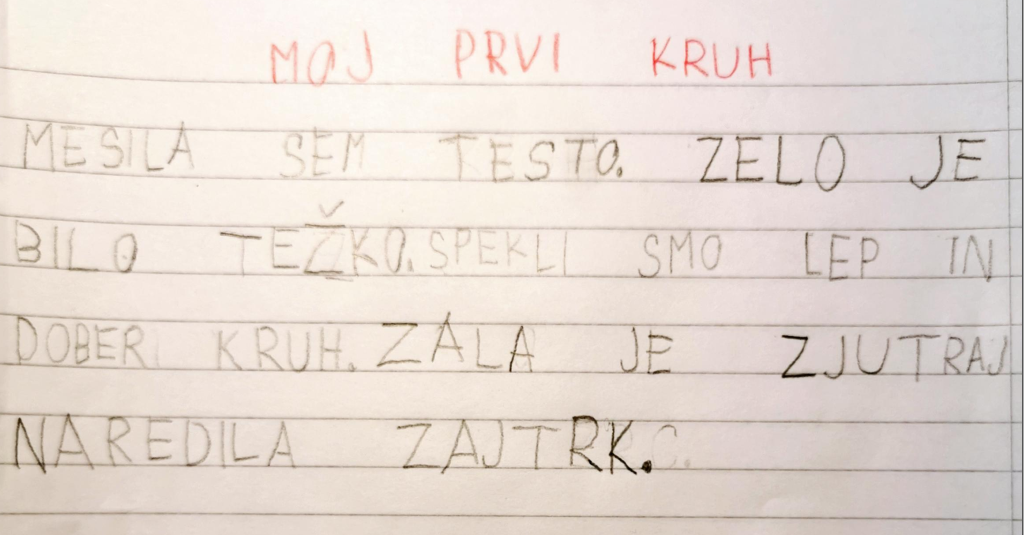 MOJ PRVI KRUH
MESILA SEM TESTO. ZELO JE
BILO TEŽKO. SPEKLI SMO LEP IN
DOBER KRUH. ZALA JE ZJUTRAJ
NAREDILA ZAJTRK.